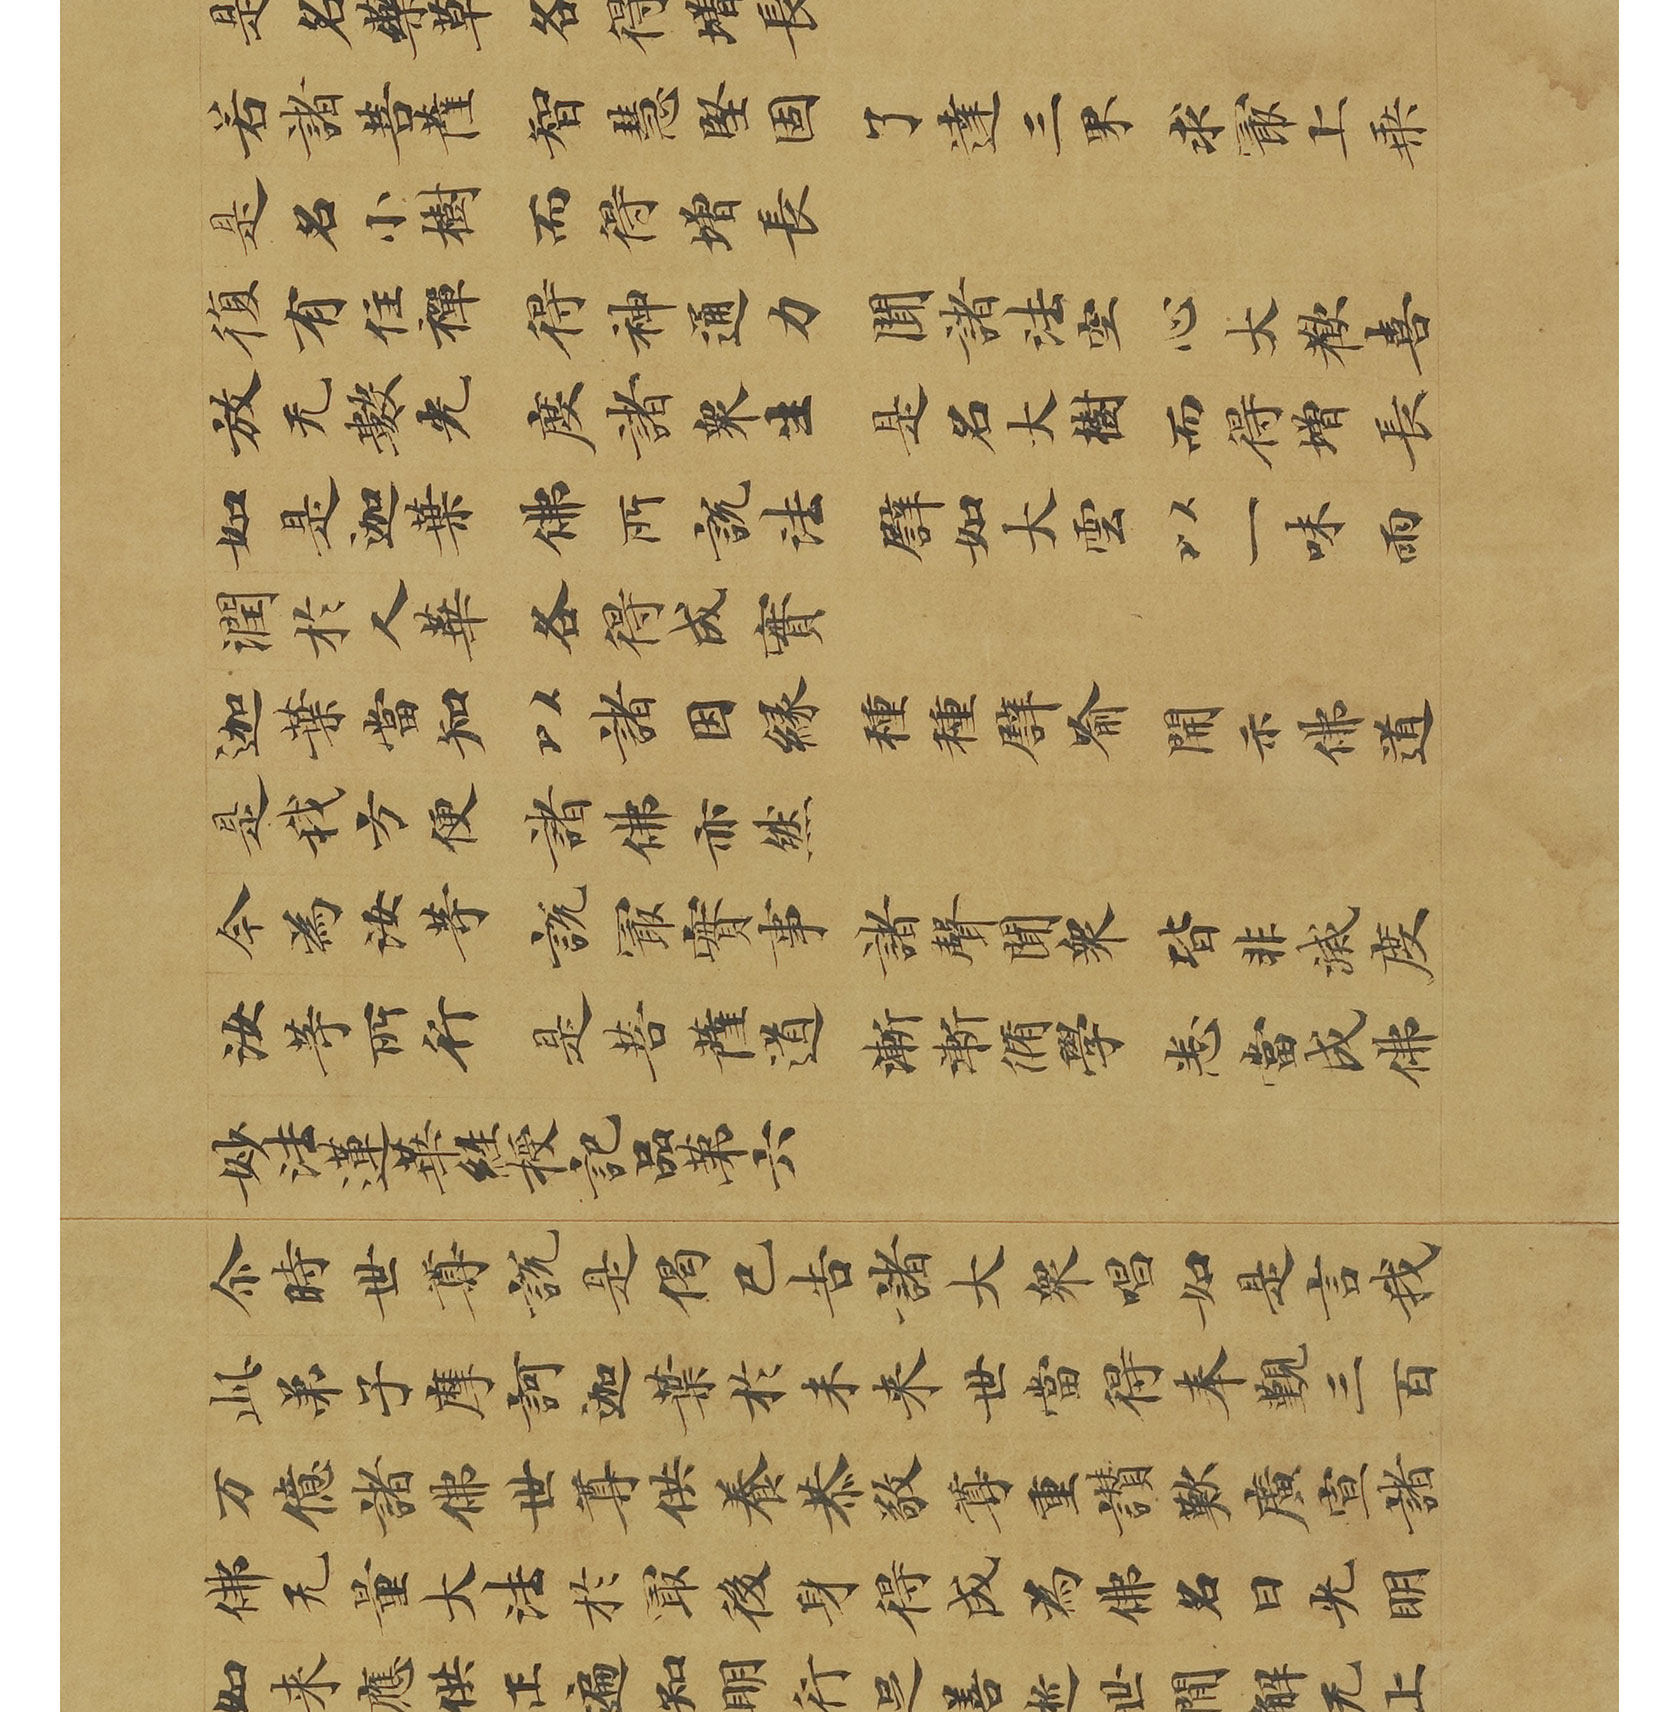 是名藥草 各得增長
若諸菩薩 智慧堅固 了達三界 求冣上乗
是名小樹 而得増長
復有住禪 得神通力 聞諸法空 心大歡喜
放无數光 度諸衆生 是名大樹 而得増長
如是迦葉 佛所說法 譬如大雲 以一味雨
潤於人華 各得成實
迦葉當知 以諸因緣 種種譬喻 開示佛道
是我方便 諸佛亦然
今為汝等 說冣實事 諸聲聞衆 皆非滅度
汝等所行 是菩薩道 漸漸脩學 悉當成佛
妙法蓮華經授記品第六
尒時世尊說是偈已告諸大衆唱如是言我
此弟子摩訶迦葉於未来世當得奉覲三百
万億諸佛世尊供養恭敬尊重讃歎廣宣諸
佛无量大法於冣後身得成為佛名曰光明
如来應供正遍知明行足善逝世間解无上